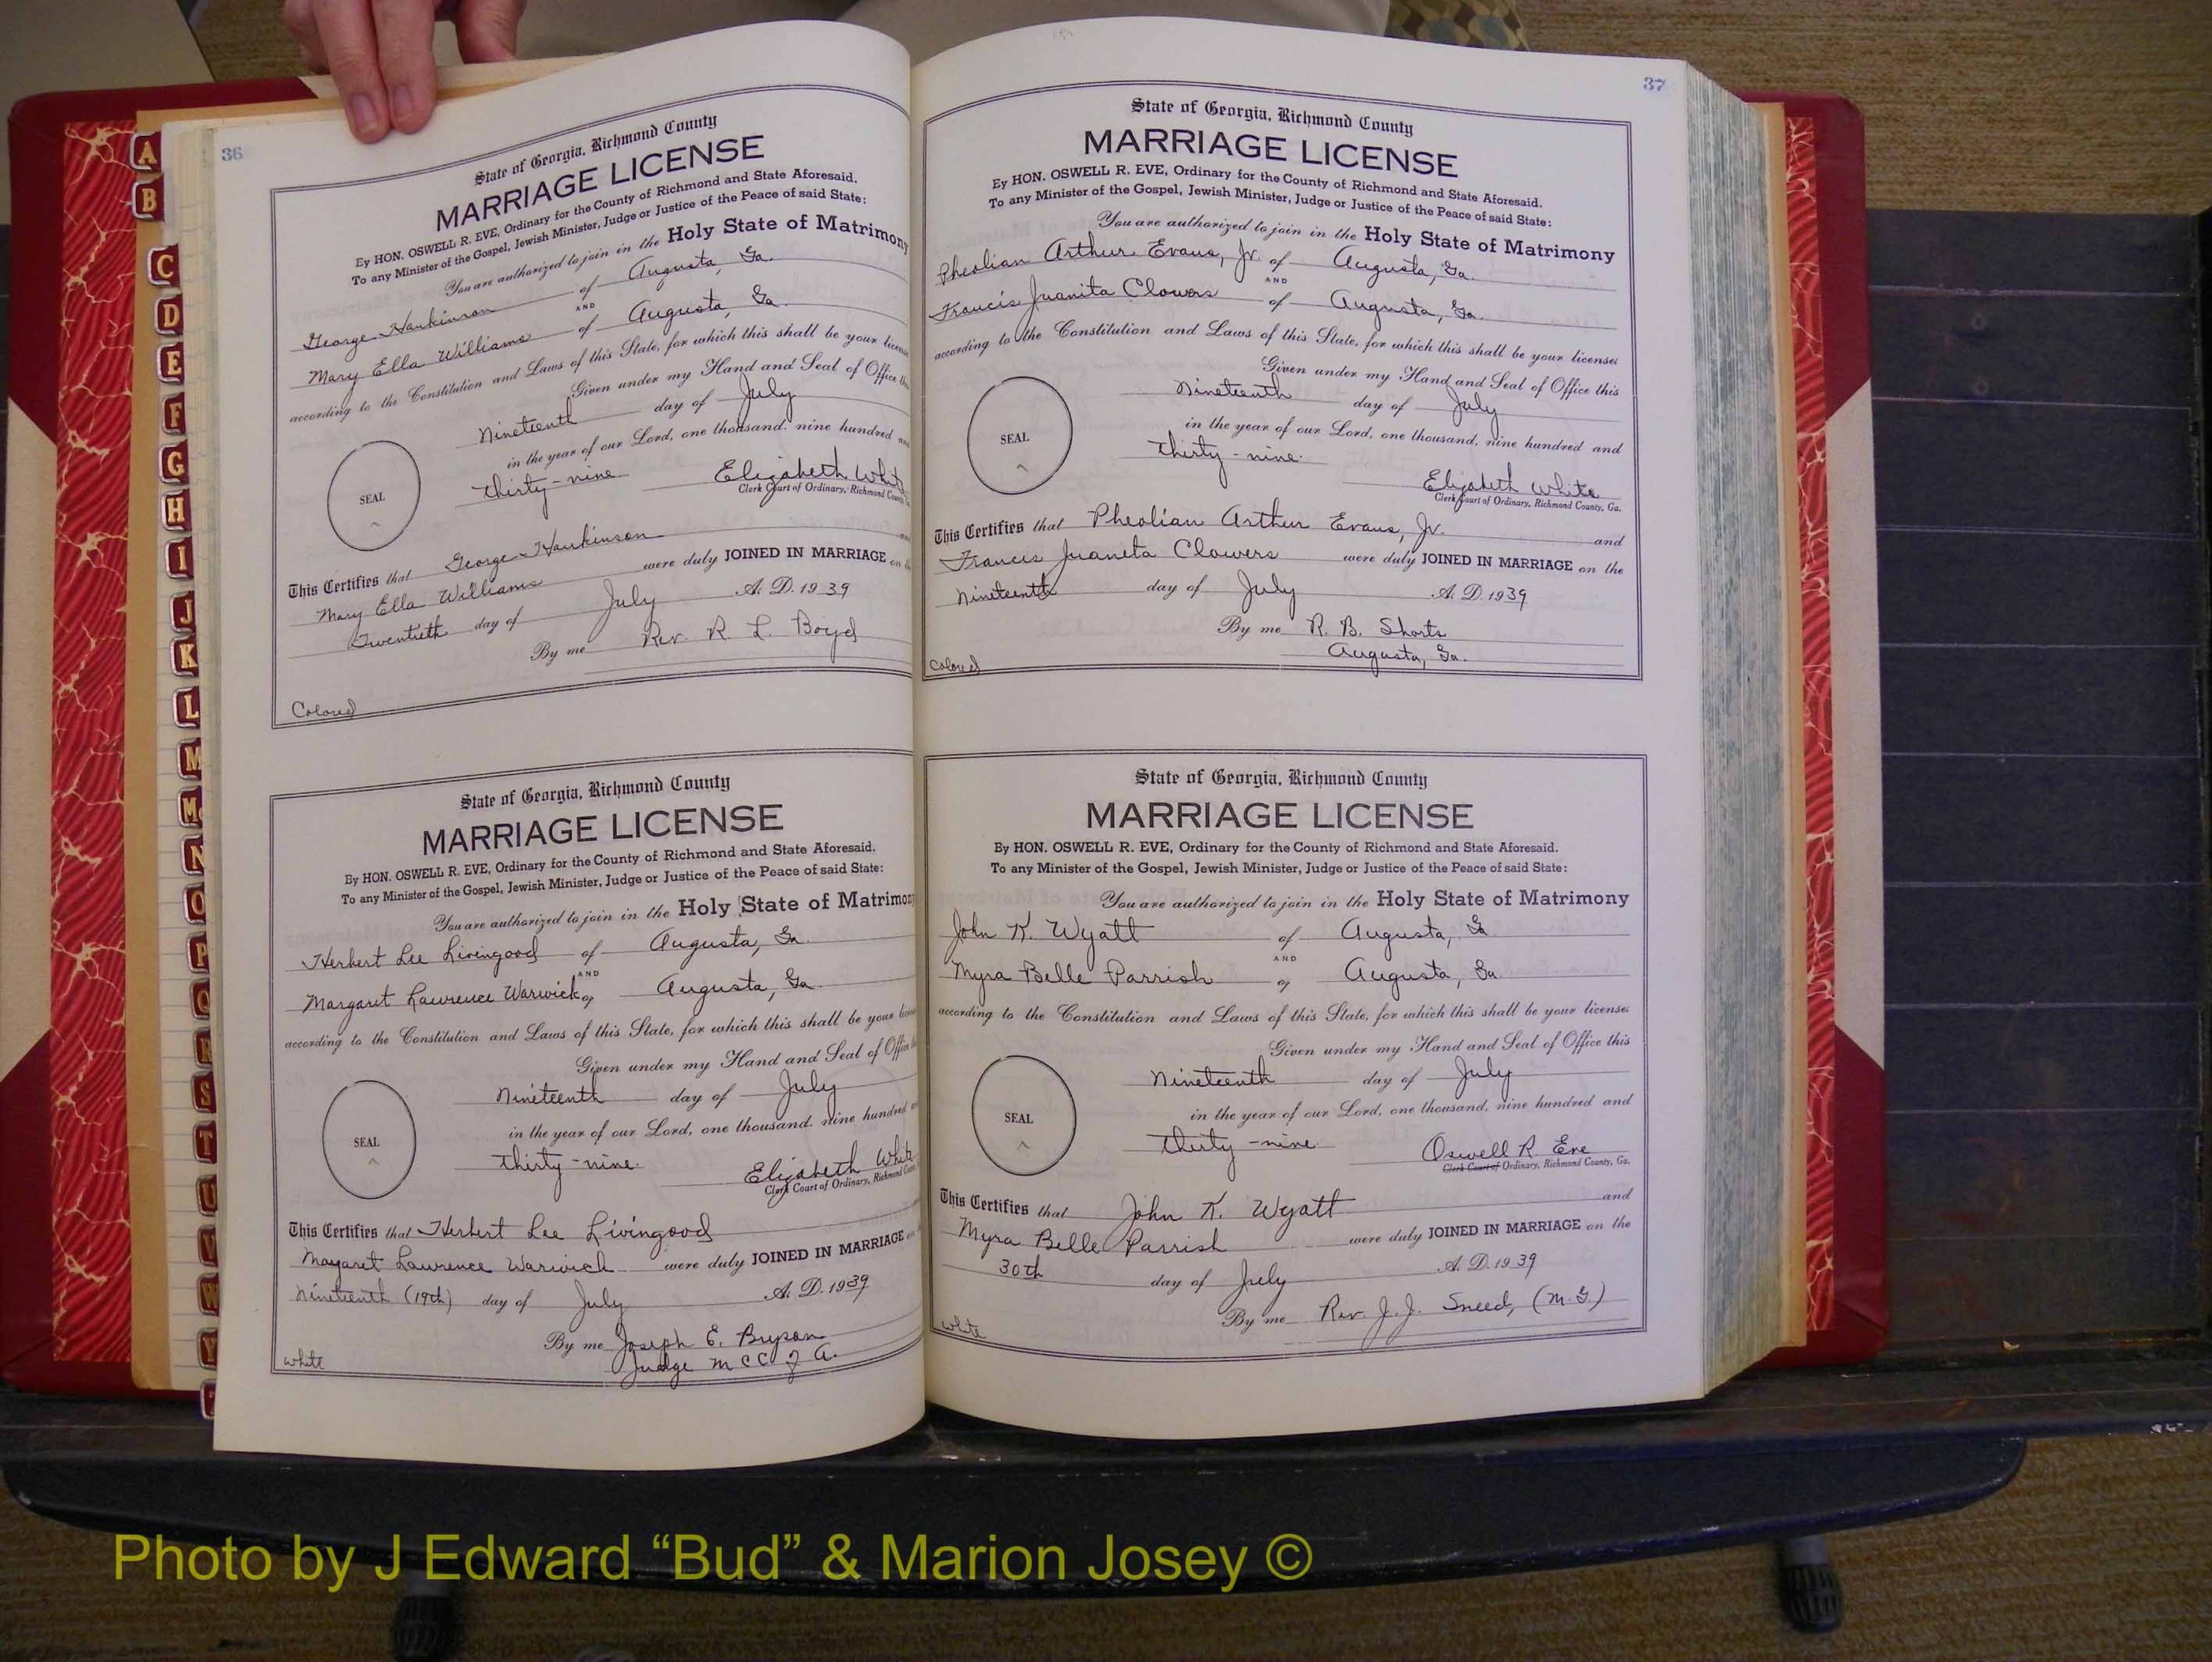 36
State of Georgia, Richmond County
MARRIAGE LICENSE
By HON. OSWELL R. EVE, Ordinary for the County of Richmond and State Aforesaid.
To any Minister of the Gospel, Jewish Minister, Judge or Justice of the Peace of said State:
You are authorized to join in the Holy State of Matrimony
George Hankinson of Augusta, Ga.
AND
Mary Ella Williams of Augusta, Ga.
according to the Constitution and Laws of this State, for which this shall be your license
Given under my Hand and Seal of Office
Nineteenth day of July
in the year of our Lord, one thousand, nine hundred
SEAL
thirty-nine
Elizabeth White
Clerk Court of Ordinary, Richmond
This Certifies that George Hankinson
Mary Ella Williams were duly JOINED IN MARRIAGE on
Twentieth day of July A. D. 1939
By me Rev. R. L. Boyd
Colored
State of Georgia, Richmond County
MARRIAGE LICENSE
By HON. OSWELL R. EVE, Ordinary for the County of Richmond and State Aforesaid.
To any Minister of the Gospel, Jewish Minister, Judge or Justice of the Peace of said State:
You are authorized to join in the Holy State of Matrimony
Herbert Lee Livingood of Augusta, Ga.
AND
Margaret Lawrence Warwick of Augusta, Ga.
according to the Constitution and Laws of this State, for which this shall be your
Given under my Hand and Seal of Office
Nineteenth day of July
in the year of our Lord, one thousand, nine hundred
SEAL
thirty-nine.
Elizabeth White
Clerk Court of Ordinary, Richmond
This Certifies that Herbert Lee Livingood
Margaret Lawrence Warwick were duly JOINED IN MARRIAGE
Nineteenth (19th) day of July A. D. 1939
By me Joseph E. Bryson
Judge M C C of A.
white
37
State of Georgia, Richmond County
MARRIAGE LICENSE
By HON. OSWELL R. EVE, Ordinary for the County of Richmond and State Aforesaid.
To any Minister of the Gospel, Jewish Minister, Judge or Justice of the Peace of said State:
You are authorized to join in the Holy State of Matrimony
Pheolian Arthur Evans, Jr. of Augusta, Ga.
AND
Francis Juanita Clowers of Augusta, Ga.
according to the Constitution and Laws of this State, for which this shall be your license:
Given under my Hand and Seal of Office this
Nineteenth day of July
in the year of our Lord, one thousand, nine hundred and
SEAL
thirty-nine.
Elizabeth White
Clerk Court of Ordinary, Richmond County, Ga.
This Certifies that Pheolian Arthur Evans, Jr. and
Francis Juanita Clowers were duly JOINED IN MARRIAGE on the
Nineteenth day of July A. D. 1939
By me R. B. Shorts
Augusta, Ga.
Colored
State of Georgia, Richmond County
MARRIAGE LICENSE
By HON. OSWELL R. EVE, Ordinary for the County of Richmond and State Aforesaid.
To any Minister of the Gospel, Jewish Minister, Judge or Justice of the Peace of said State:
You are authorized to join in the Holy State of Matrimony
John K. Wyatt of Augusta, Ga
AND
Myra Belle Parrish of Augusta, Ga.
according to the Constitution and Laws of this State, for which this shall be your license:
Given under my Hand and Seal of Office this
Nineteenth day of July
in the year of our Lord, one thousand, nine hundred and
SEAL
thirty-nine.
Oswell R. Eve
Clerk Court of Ordinary, Richmond County, Ga.
This Certifies that John K. Wyatt and
Myra Belle Parrish were duly JOINED IN MARRIAGE on the
30th day of July A. D. 1939
By me Rev. J. J. Sneed, (M. G.)
white
A
B
C
D
E
F
G
H
I
J
K
L
M
Mc
N
O
P
Q
R
S
T
U
V
W
Y
Photo by J Edward “Bud” & Marion Josey ©